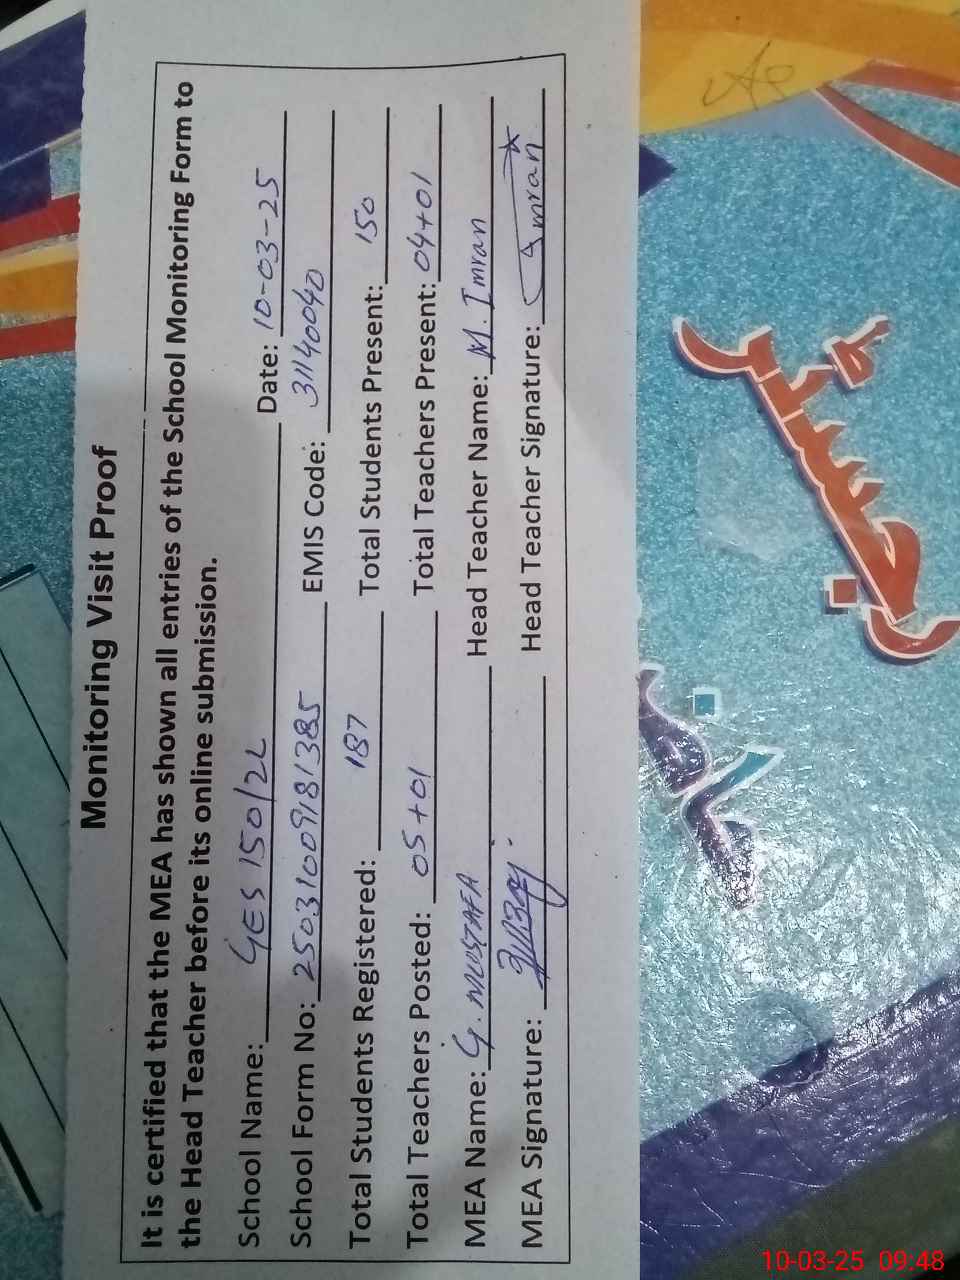 Monitoring Visit Proof
It is certified that the MEA has shown all entries of the School Monitoring Form to
the Head Teacher before its online submission.
School Name: GES 150/2L Date: 10-03-25
School Form No: 25031009181385 EMIS Code: 31140040
Total Students Registered: 187 Total Students Present: 150
Total Teachers Posted: 05+01 Total Teachers Present: 04+01
MEA Name: G. MUSTAFA Head Teacher Name: M. Imran
MEA Signature: Head Teacher Signature: Imran
رجسٹر
10-03-25 09:48